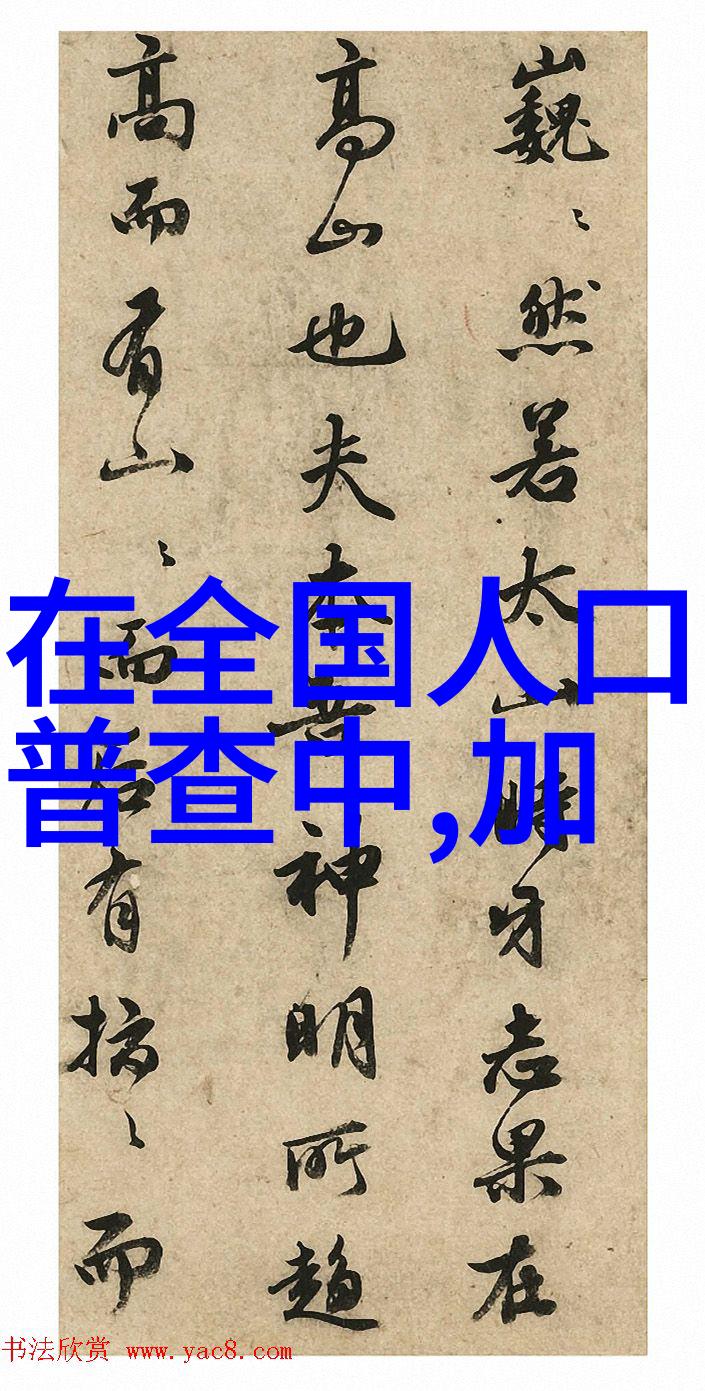 巍〻然若太山時牙志果在
高山也夫神明所趨
高而有山〻而后有〻而
在全国人口
普查中,加
书法欣赏 www.yac8.com